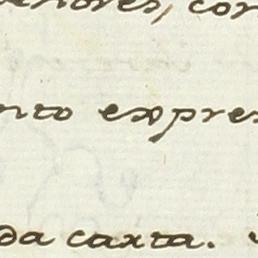 enores, con
nto expres
da carta.